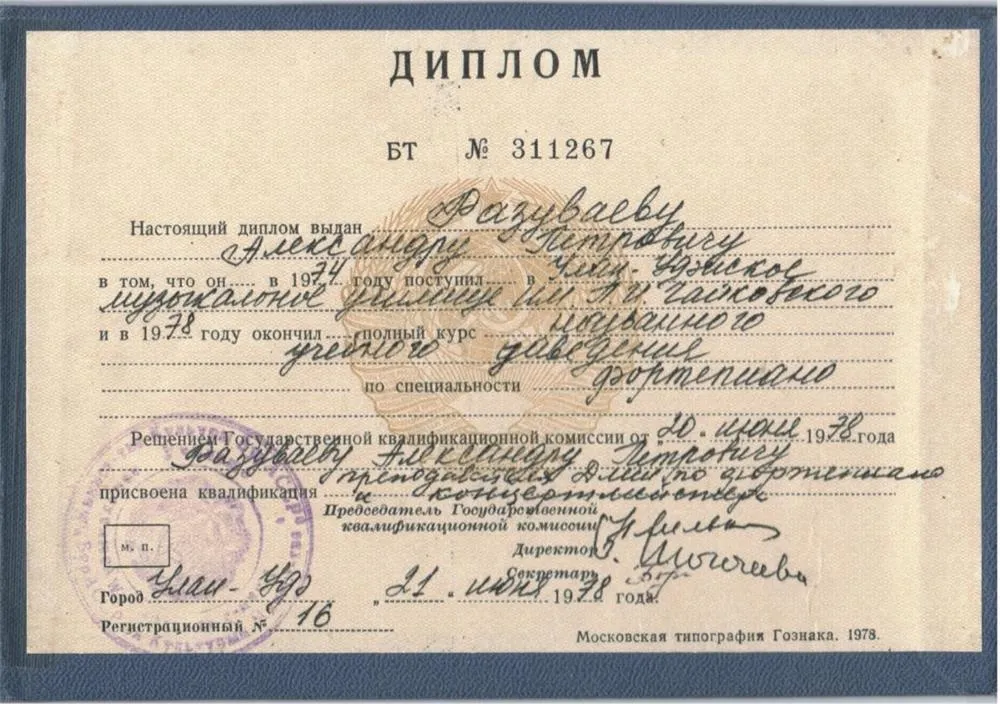 ДИПЛОМ
БТ № 311267
Настоящий диплом выдан Разуваеву
Александру Петровичу
в том, что он в 1974 году поступил в Улан-Удэнское
музыкальное училище им. П. И. Чайковского
и в 1978 году окончил полный курс названного
учебного заведения
по специальности фортепиано
Решением Государственной квалификационной комиссии от 20. июня 1978 года
Разуваеву Александру Петровичу
присвоена квалификация преподаватель ДМШ по фортепиано
и концертмейстер
Председатель Государственной
квалификационной комиссии
Директор
Секретарь
м. п.
Город Улан-Удэ „21. июня 1978 года.
Регистрационный № 16
Московская типография Гознака. 1978.